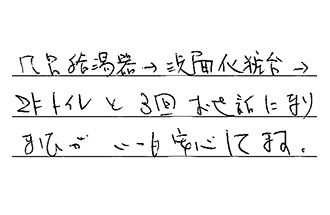 風呂給湯器→洗面化粧台→
2Fトイレと3回お世話になり
ますが 一番安心してます。